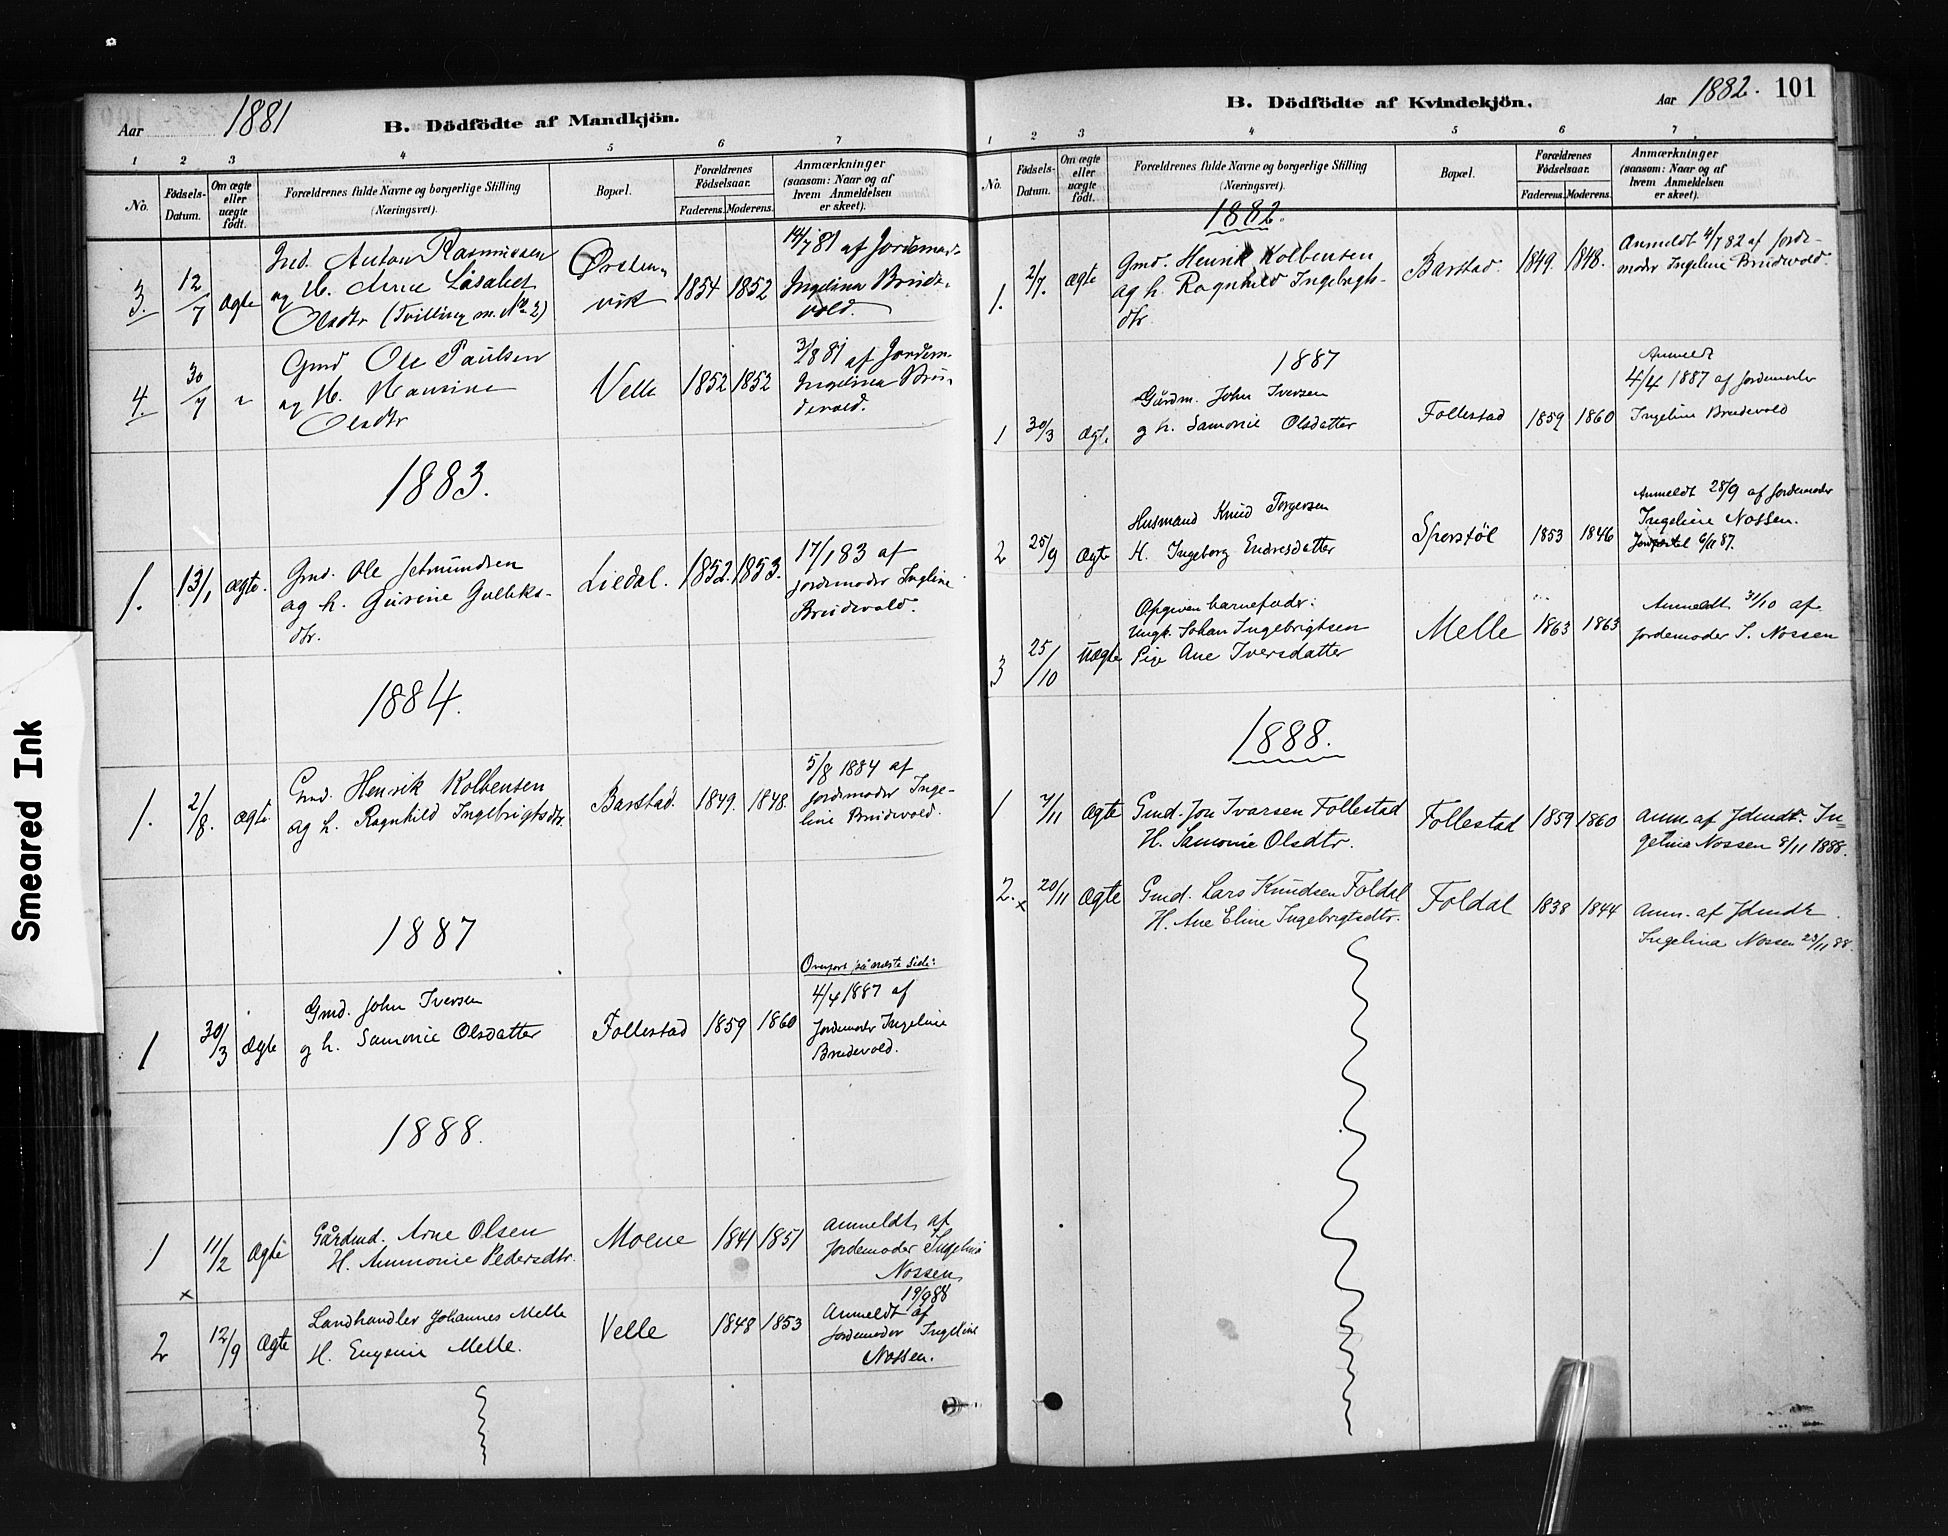 Smeared Ink
Aar 1881
B. Dödfödte af Mandkjön.
1 2 3 4 5 6 7
No.
Födsels-Datum.
Om ægte eller uægte födt.
Forældrenes fulde Navne og borgerlige Stilling
(Næringsvei).
Bopæl.
Forældrenes Födselsaar.
Faderens. Moderens.
Anmærkninger
(saasom: Naar og af
hvem Anmeldelsen
er skeet).
3. 12/7 ægte
Anton Rasmussen
og H. Anne Lisabet
Olsdtr (Tvilling m. No 2)
Ørsten-
vik
1854 1852
14/7 81 af Jordemod-
Ingelina Brude-
vold.
4. 30/7 "
Gmd Ole Paulsen
og H. Hansine
Olsdtr
Velle 1852 1852
3/8 81 af Jordem.
Ingelina Bru-
devold.
1883.
1. 13/1 ægte.
Gmd. Ole Jetmundsen
og h. Gurine Gulleks-
dtr.
Liedal. 1852. 1853.
17/1 83 af
Jordemoder Ingline
Brudevold.
1884.
1. 2/8. ægte
Gmd. Henrik Kolbensen
og h. Ragnhild Ingebrigtsdtr.
Barstad. 1849. 1848.
5/8 1884 af
Jordemoder Inge-
line Brudevold.
1887
1 30/3 ægte
Gmd. John Iversen
og h. Samonie Olsdatter
Follestad 1859 1860
Overført på næste Side:
4/4 1887 af
Jordemoder Ingeline
Brudevold.
1888.
1 11/2 ægte
Gårdmd. Arne Olsen
H. Ammonie Pedersdtr.
Moene 1841 1851
Anmeldt af
Jordemoder Ingelina
Nossen
x
2 12/9 ægte
Landhandler Johannes Melle
H. Eugenie Melle.
Velle 1848 1853
19/9 88
Anmeldt af
Jordemoder Ingeline
Nossen.
B. Dödfödte af Kvindekjön.
Aar 1882. 101
1 2 3 4 5 6 7
No.
Födsels-Datum.
Om ægte eller uægte födt.
Forældrenes fulde Navne og borgerlige Stilling
(Næringsvei).
Bopæl.
Forældrenes Födselsaar.
Faderens. Moderens.
Anmærkninger
(saasom: Naar og af
hvem Anmeldelsen
er skeet).
1882.
1. 2/7. ægte
Gmd. Henrik Kolbensen
og h. Ragnhild Ingebrigts-
dtr.
Barstad. 1849. 1848.
Anmeldt 4/7 82 af Jorde-
moder Ingeline Brudevold.
1887
1 30/3 ægte
Gårdm. John Iversen
og h. Samonie Olsdatter
Follestad 1859 1860
Anmeldt
4/4 1887 af Jordemoder
Ingeline Brudevold
2 25/9 ægte
Husmand Knud Torgersen
H. Ingeborg Endresdatter
Sperstöl 1853 1846
Anmeldt 28/9 af Jordemoder
Ingeline Nossen.
87.
3 25/10 uægte
Opgiven barnefader:
Ungk. Johan Ingebrigtsen
Pige Ane Iversdatter
Melle 1863 1863
Anmeldt 31/10 af
Jordemoder I. Nossen
1888.
1 7/11 ægte
Gmd. Jon Ivarsen Follestad
H. Samonie Olsdtr.
Follestad 1859 1860
Anm. af Jdmdr. In-
gelina Nossen 8/11 1888.
2. x 20/11 ægte
Gmd. Lars Knudsen Foldal
H. Ane Eline Ingebrigtsdtr.
Foldal 1838 1844
Anm. af Jdmdr
Ingelina Nossen 23/11 88.